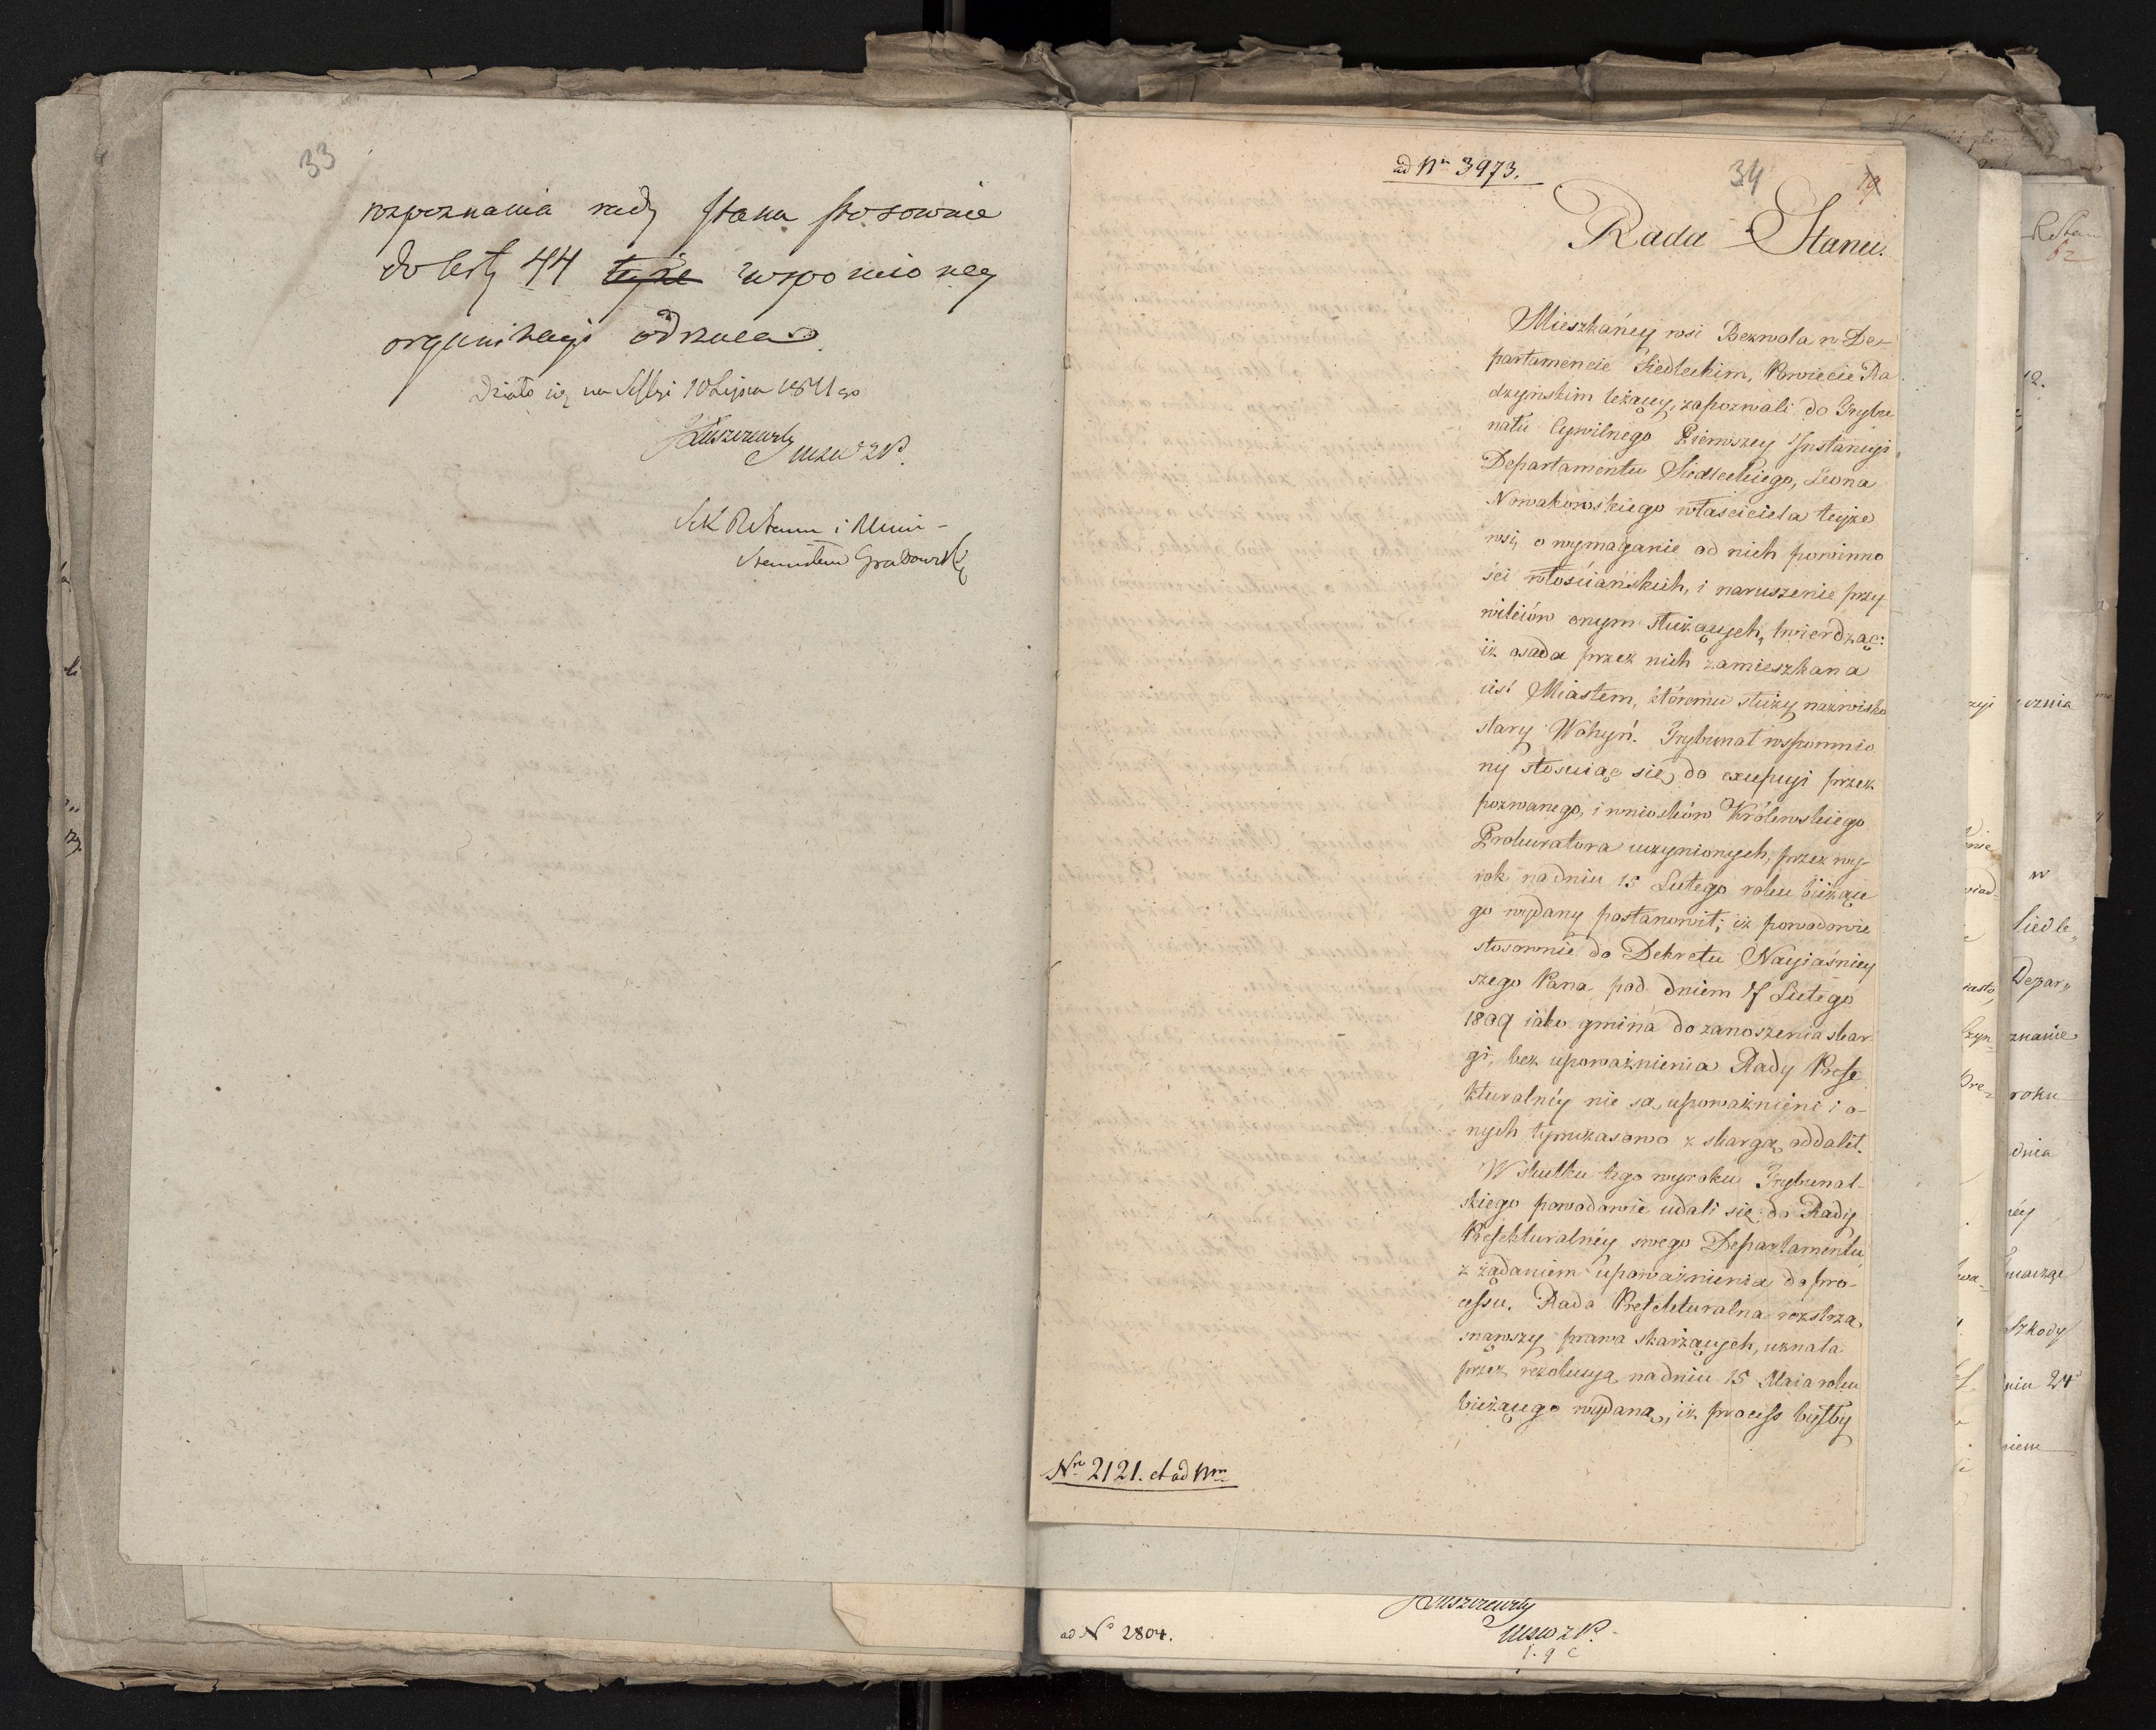 33
rozpoznania rady stanu stosownie
do lesty 44 teyże wspomioney
organizacyi odsyła
Działo się na Sessyi 10 Lipca 1811 go
Łuszczewski
Sek R Stanu i Mini-
Stanisław Grabowski
ad Nm 3973.
34
19
Rada Stanu.
Mieszkańcy wsi Bezwola w De-
partamencie Siedleckim, Powiecie Ra
dzyńskim leżący, zapozwali do Trybu
nału Cywilnego Pierwszey Instancyi
Departamentu Siedleckiego, Leona
Nowakowskiego właściciela teyże
wsi, o wymaganie od nich powinno
ści włościańskich, i naruszenie przy
wileiów onym służących, twierdząc:
iż osada przez nich zamieszkana
iest Miastem, któremu służy nazwisko
stary Wohyń. Trybunał wspomnio
ny stosuiąc się do excepcyi przez
pozwanego, i wniosków Królewskiego
Prokuratora uczynionych, przez wy-
rok na dniu 15 Lutego roku bieżące
go wydany postanowił; iż powodowie
stosownie do Dekretu Nayiaśniey
szego Pana pod dniem 17 Lutego
1809 iako gmina do zanoszenia skar
gi, bez upoważnienia Rady Prefe
kturalnéy nie są upoważnieni i o-
nych tymczasowo z skargą oddalił.
W skutku tego wyroku Trybunal-
skiego powodowie udali się do Rady
Prefekturalnéy swego Departamentu
z żądaniem upoważnienia do pro-
cessu. Rada Prefekturalna rozstrzą
snąwszy prawa skarżących, uznała
przez rezolucyą na dniu 15 Maia roku
bieżącego wydaną, iż process byłby
Nro 2121. et ad Nm
ad No 2804.
Łuszczewski
R Stanu
62
12.
cznia
w
Siedle„
Depar„
znanie
roku
dnia
néy
szkody
niu 24
niem